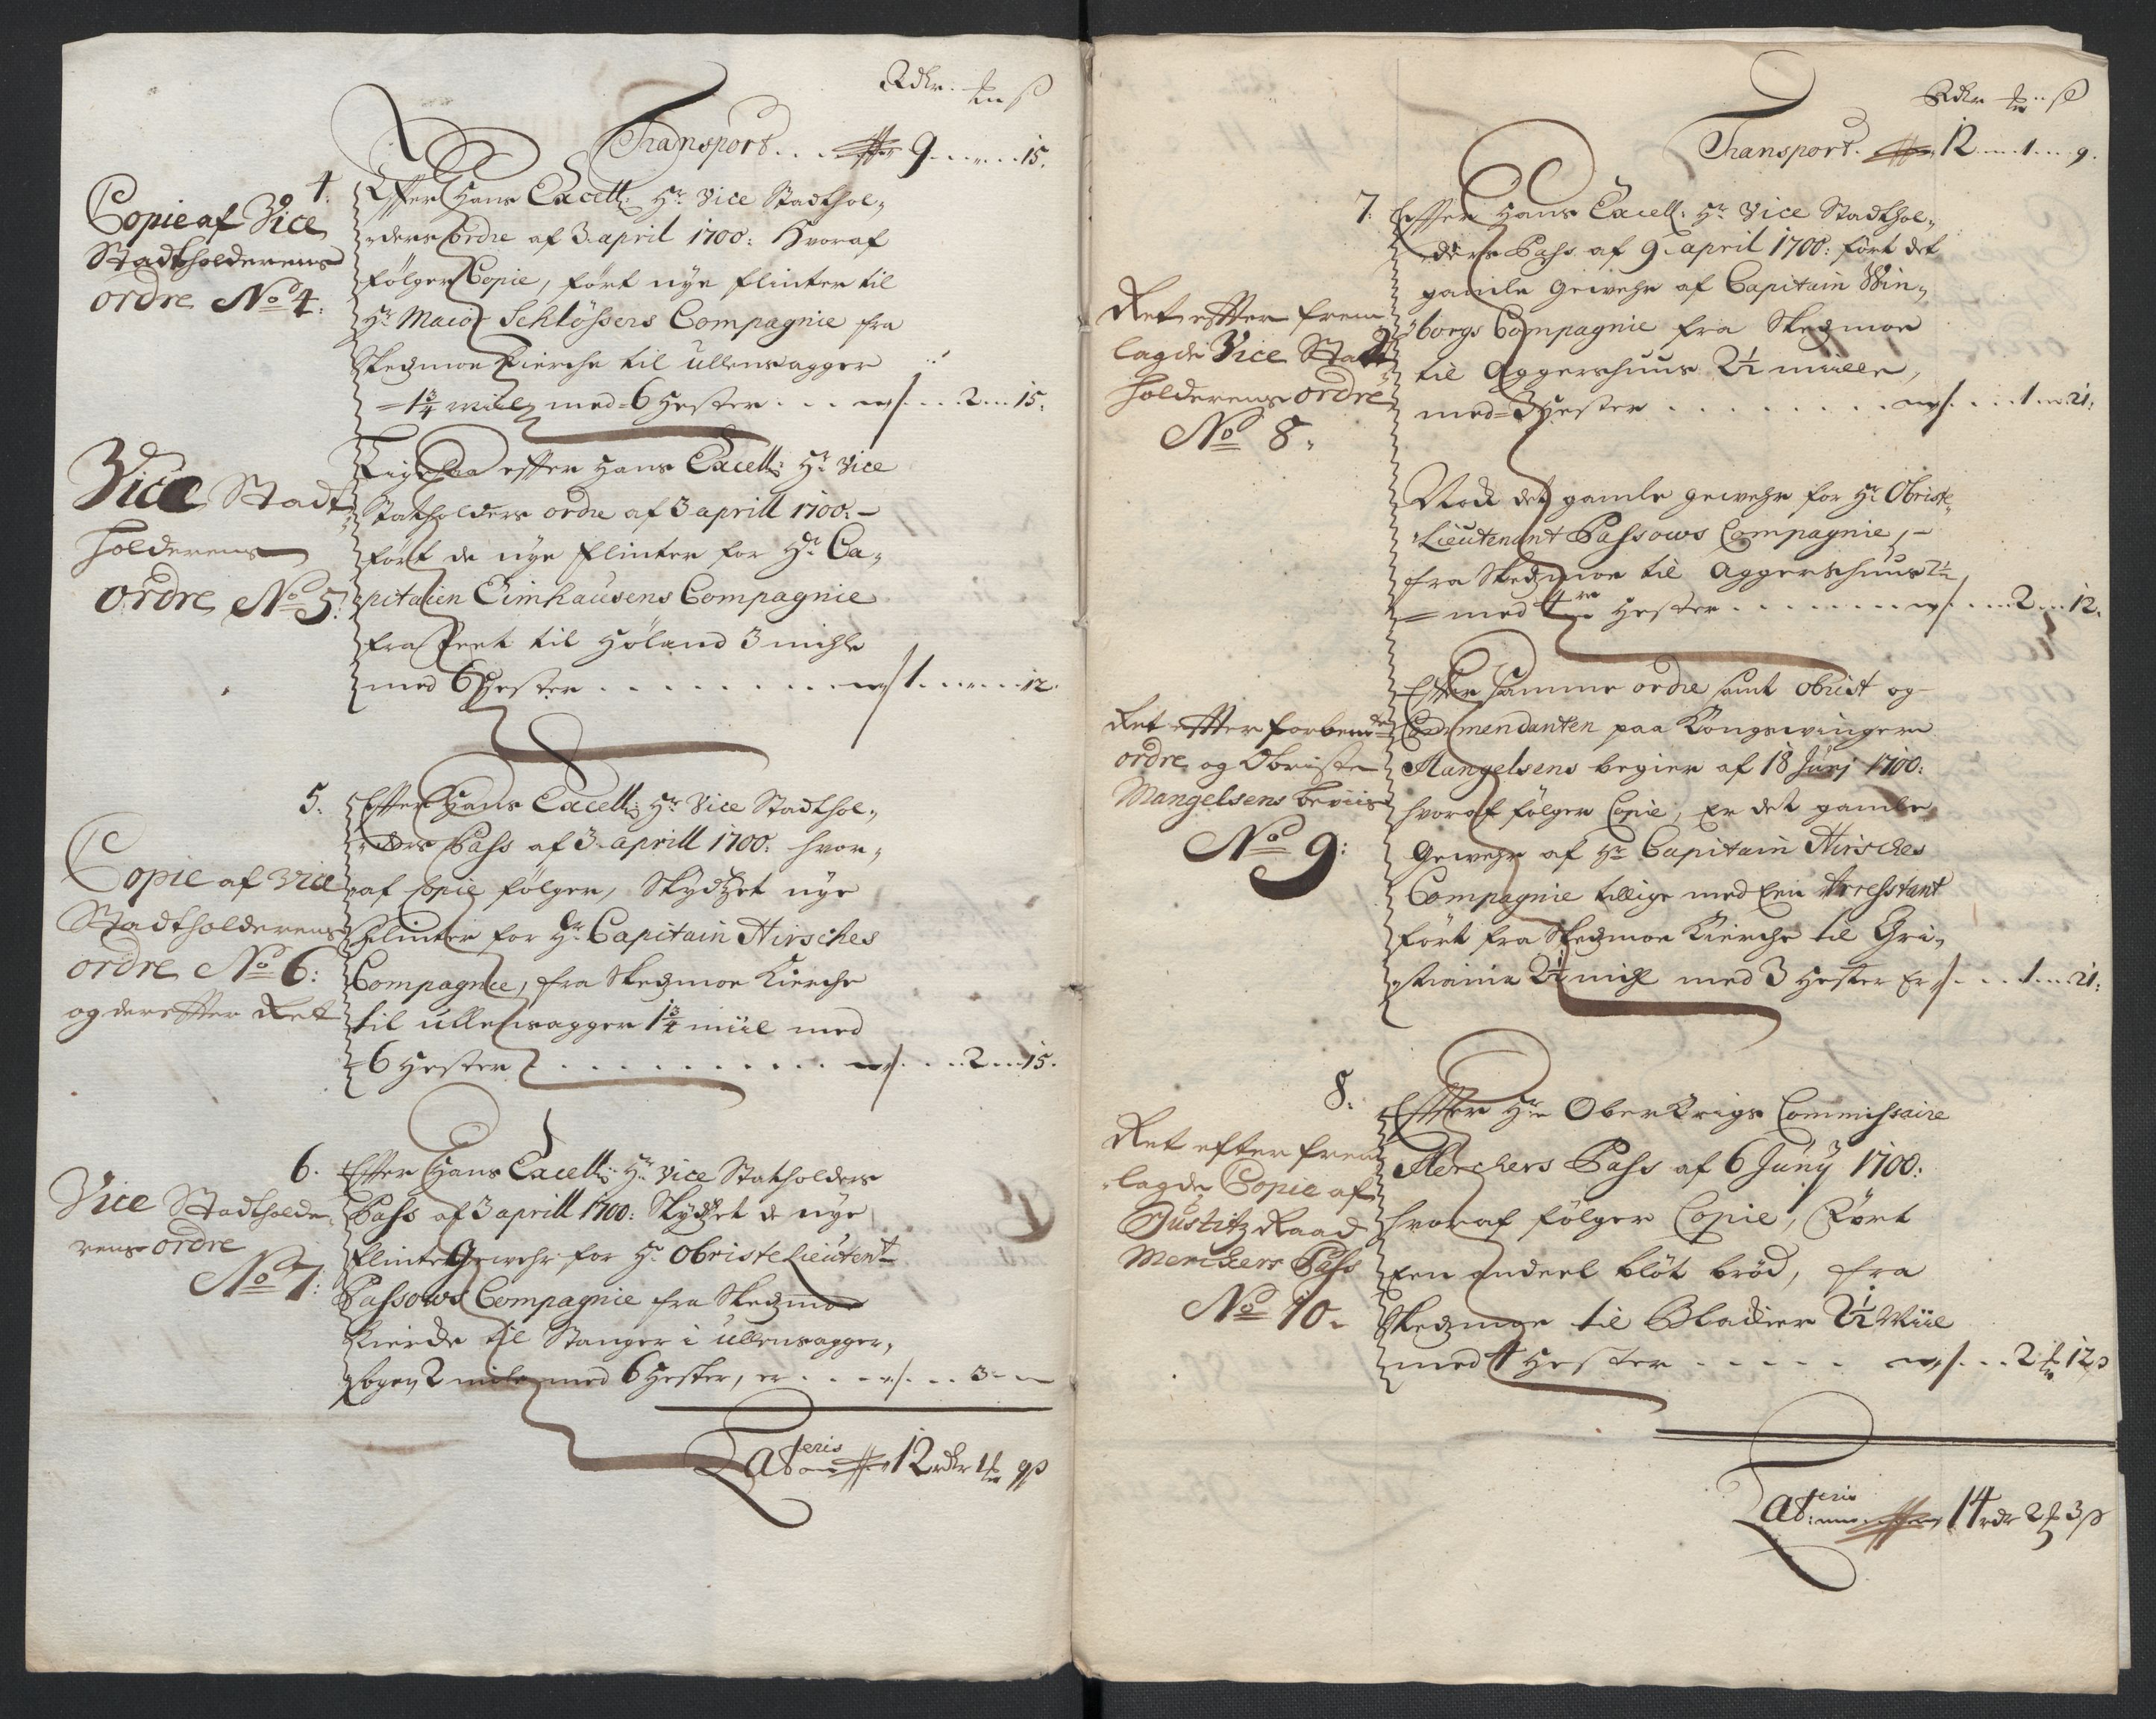 Rdlr. ß
Transport. . . 9 . . . . 15.
4.
Copie af Vice
Stadtholderens
ordre No 4:
Effter Hans Excell: Hr Vice Stadthol„
„ders ordre af 3. april 1700: Hvoraf
følger Copie, ført nye flinter til
Hr Maior Schlössers Compagnie fra
Skedzmoe Kierche til ullensagger
= 1 3/4 miil med 6 Hester . . . . . 2 . . 15.
Vice Stadt„
holderens
ordre No 5:
Ligesaa effter Hans Excell: Hr Vice
Statholders ordre af 3 aprill 1700. –
ført de nye flinter for Hr Ca„
pitaien Eimhausens Compagnie
fra til Høland 3 miihle
med 6 Hester . . . . . . . 1 . . . . 12.
5.
Copie af Vice
Stadtholderens
ordre No 6:
og dereffter Ret
Effter Hans Excell: Hr Vice Stadthol„
„ders Pass af 3. aprill 1700: hvor„
af Copie følger, Skydzet nye
flinter for Hr Capitain Hirsches
Compagnie, fra Skedzmoe Kierche
til ullensagger 1 3/4 miil med
6 Hester . . . . . . . . . 2 . . 15.
6.
Vice Stadtholde„
rens ordre
No 7:
Effter Hans Excell: Hr vice Statholders
Pass af 3 aprill 1700: Skydzet de nye
flinte Gewehr for Hr Obriste Lieutent
Passows Compagnie fra Skedzmoe
Kierche til Stanger i ullensagger„
2 mile med 6 Hester, er . . . . . 3 –
Lateris 12 rdlr 1 9 ß
Rdlr ß
Transport. 12 . . . 1 . . . 9.
7.
Ret effter frem„
lagde Vice Stadt„
holderens ordre
No 8.
Effter Hans Excell: Hr Vice Stadthol„
ders Pass af 9. april 1700: ført det
gamle Geivehr af Capitain Win„
borgs Compagnie fra Skedzmoe
til Aggershuus 2 1/2 miille,
med 3 Hester . . . . . . . 1 . . 21.
Nock det gamle gewehr for Hr Obriste„
Lieutenant Passows Compagnie, –
fra Skedzmoe til Aggershuus 2 1/2
= med 4re Hester . . . . . . . 2 . . 12.
Ret effter forbemte
ordre og Obriste
Mangelsens beviis
No 9:
Effter samme ordre samt obrist og
Commendanten paa Kongswingere
Mangelsens begier af 18 Junj 1700:
hvoraf følger Copie, er det gamle
Gewehr af Hr Capitain Hirsches
Compagnie tillige med Een Arresstant
ført fra Skedzmoe Kierche til Chri„
stiania 2 1/2 miil med 3 Hester Er . . . 1 . . 21.
8.
Ret effter frem„
lagde Copie af
Justitz Raad
Merckers Pass
No 10.
Effter Hr Ober Krigs Commissaire
Merchers Pass af 6 Junÿ 1700:
hvoraf følger Copie, Ført
Een andeel bløt brød, fra
Skedzmoe til Bladier 2 1/2 Miil
med 4 Hester . . . . . . . . 2 12 ß
Lateris 14 rdr 2 3 ß